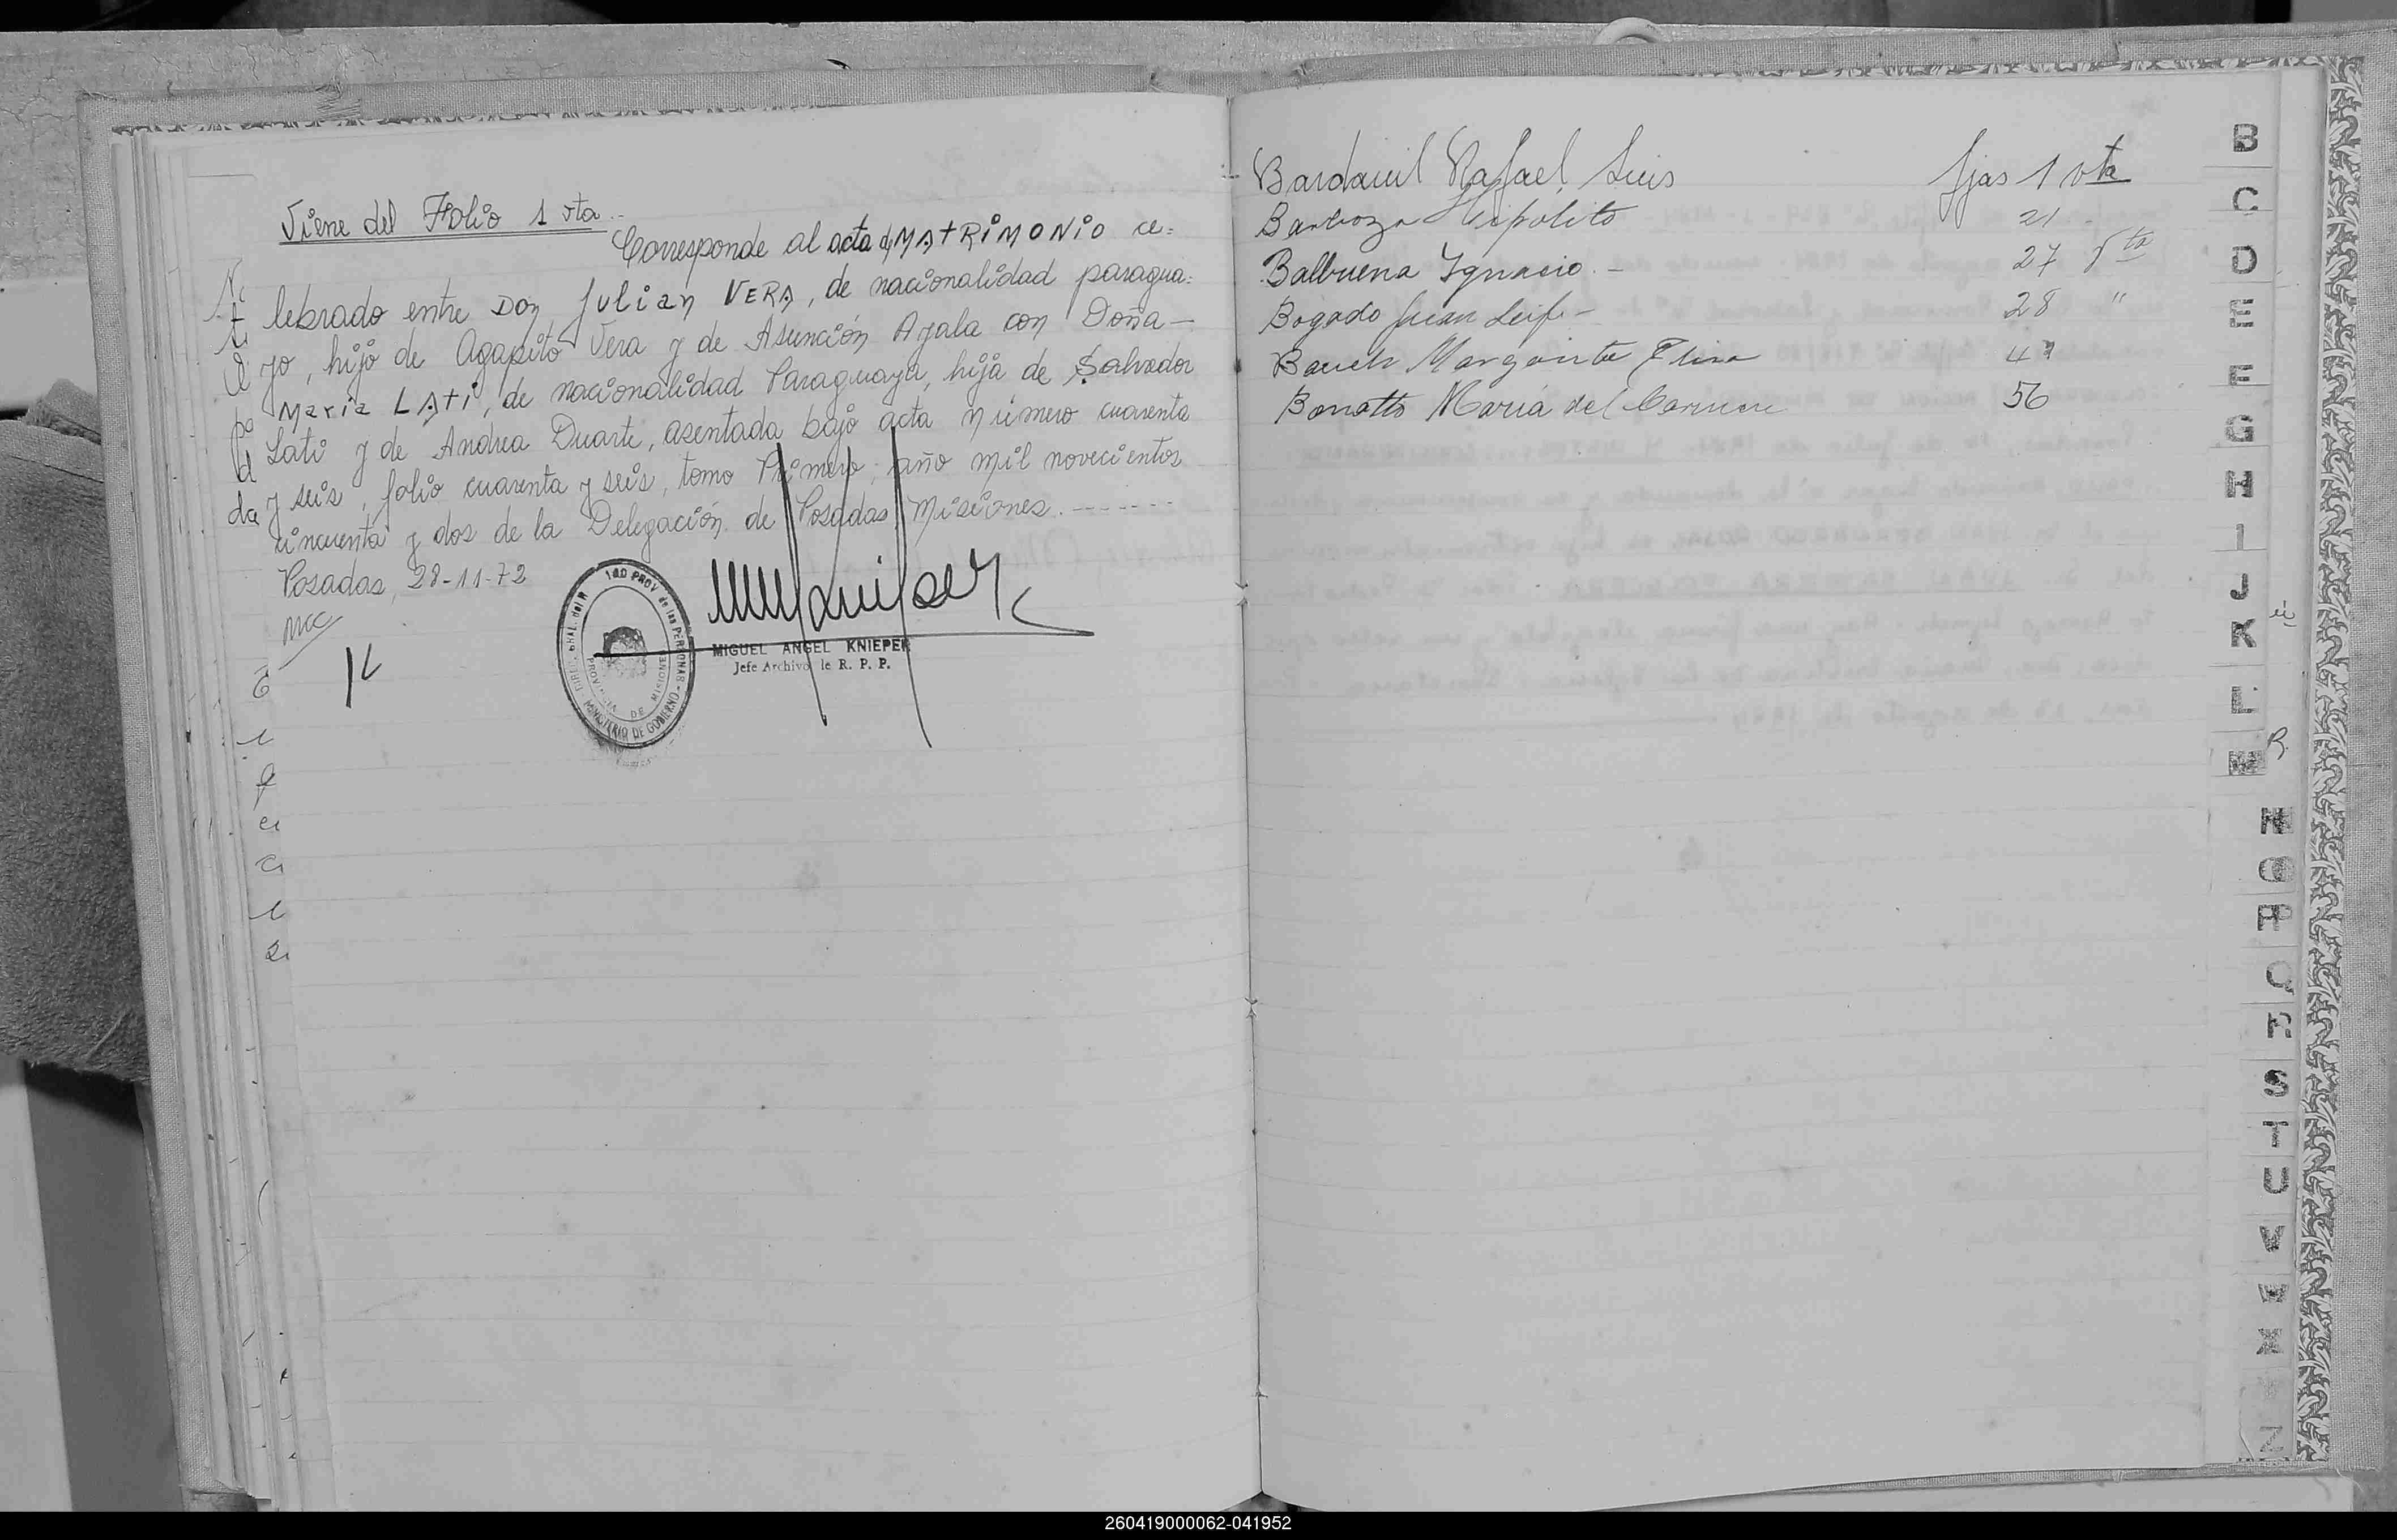 Viene del Folio 1 vta.-
Corresponde al acta de MAtRiMONio ce=
lebrado entre Don Julian VERA, de nacionalidad paragua=
yo, hijo de Agapito Vera y de Asunción Ayala con Doña—
Maria LAti, de nacionalidad Paraguaya, hija de Salvador
Lati y de Andrea Duarte, asentada bajo acta número cuarenta
y seis, folio cuarenta y seis, tomo Primero, año mil novecientos
cincuenta y dos de la Delegación de Posadas, Misiones.-------
Posadas, 28-11-72
MIGUEL ANGEL KNIEPER
Jefe Archivo de R. P. P.
PROVINCIA DE MISIONES
MINISTERIO DE GOBIERNO
da
Rafael Luis fjas 1 vta
Barboza Hipólito 21 -
Balbuena Ygnacio.- 27 vta
Bogado Juan 28 "
Margarita Elisa
Bonatto María del Carmen 56
B
C
D
E
F
G
H
I
J
K
L
M
N
O
P
Q
R
S
T
U
V
W
X
Z
260419000062-041952